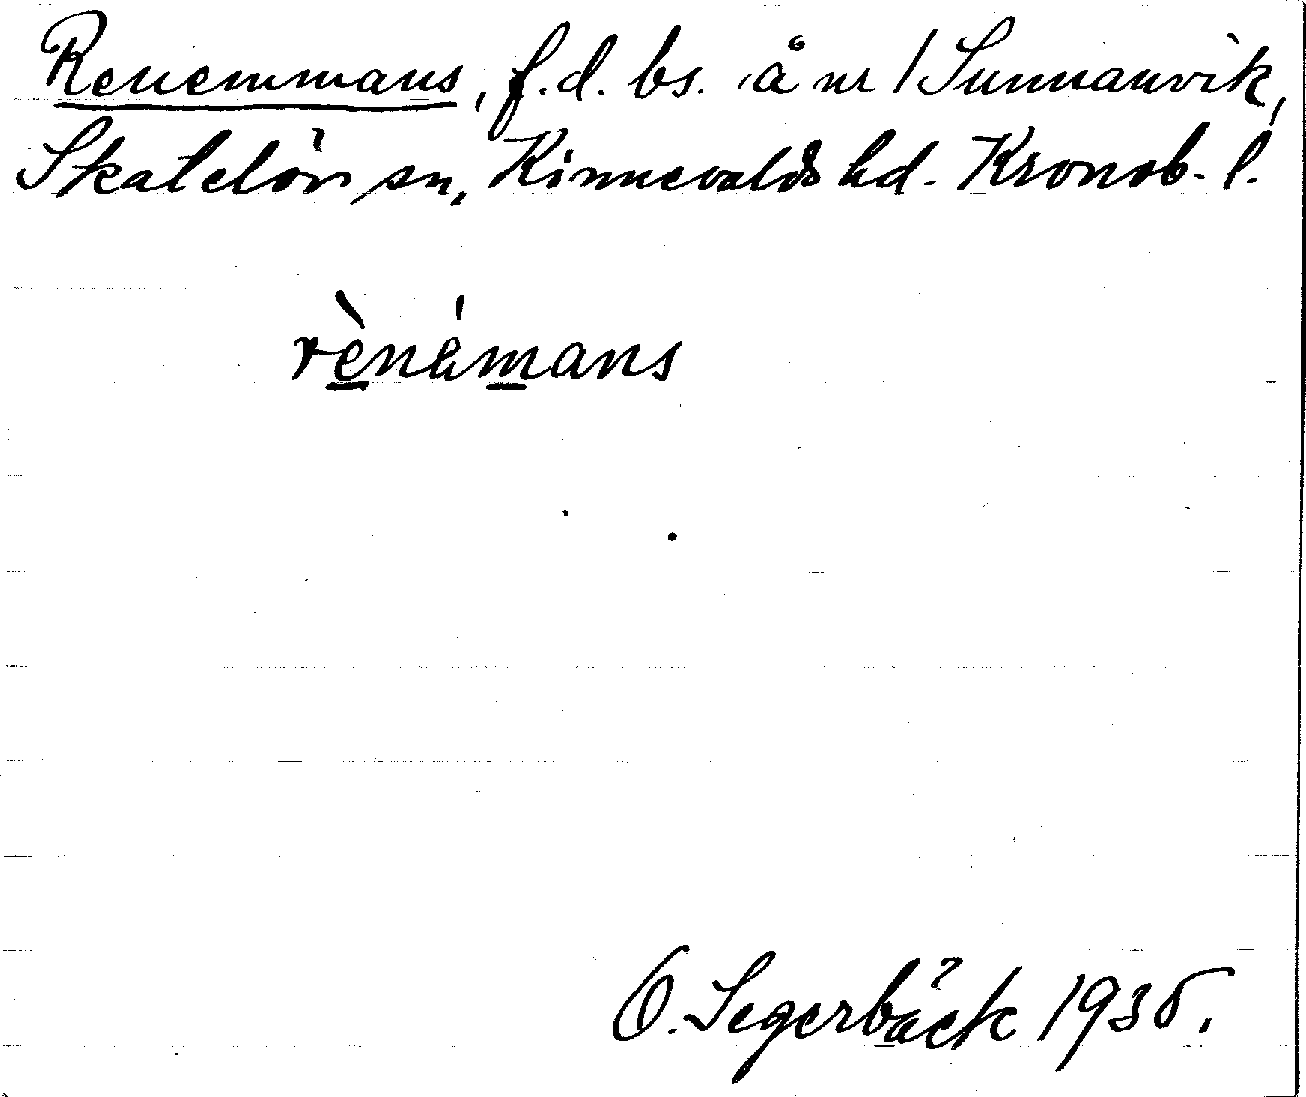 Renemmans, f.d. bs. å nr 1 Sunnanvik,
Skatelövs sn, Kinnevalds hd. Kronob. l.
rènámans
O. Segerbäck 1935.